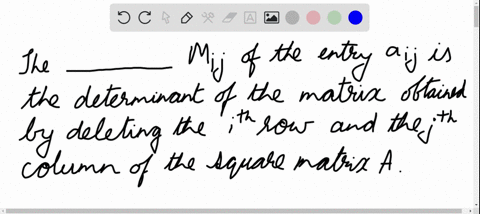 The ________ Mij of the entry aij is
the determinant of the matrix obtained
by deleting the ith row and the jth
column of the square matrix A.